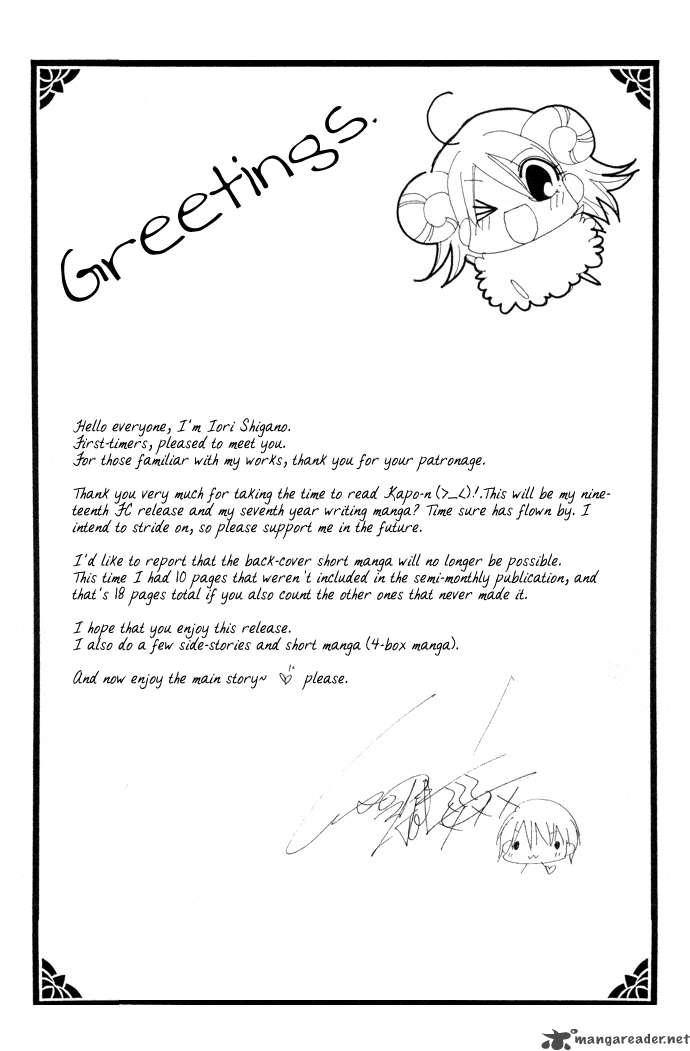 Greetings.
Hello everyone, I'm Iori Shigano.
First-timers, pleased to meet you.
For those familiar with my works, thank you for your patronage.
Thank you very much for taking the time to read Kapo-n (>_<)!.This will be my nine-
teenth FC release and my seventh year writing manga? Time sure has flown by. I
intend to stride on, so please support me in the future.
I'd like to report that the back-cover short manga will no longer be possible.
This time I had 10 pages that weren't included in the semi-monthly publication, and
that's 18 pages total if you also count the other ones that never made it.
I hope that you enjoy this release.
I also do a few side-stories and short manga (4-box manga).
And now enjoy the main story~ ♡ please.
mangareader.net